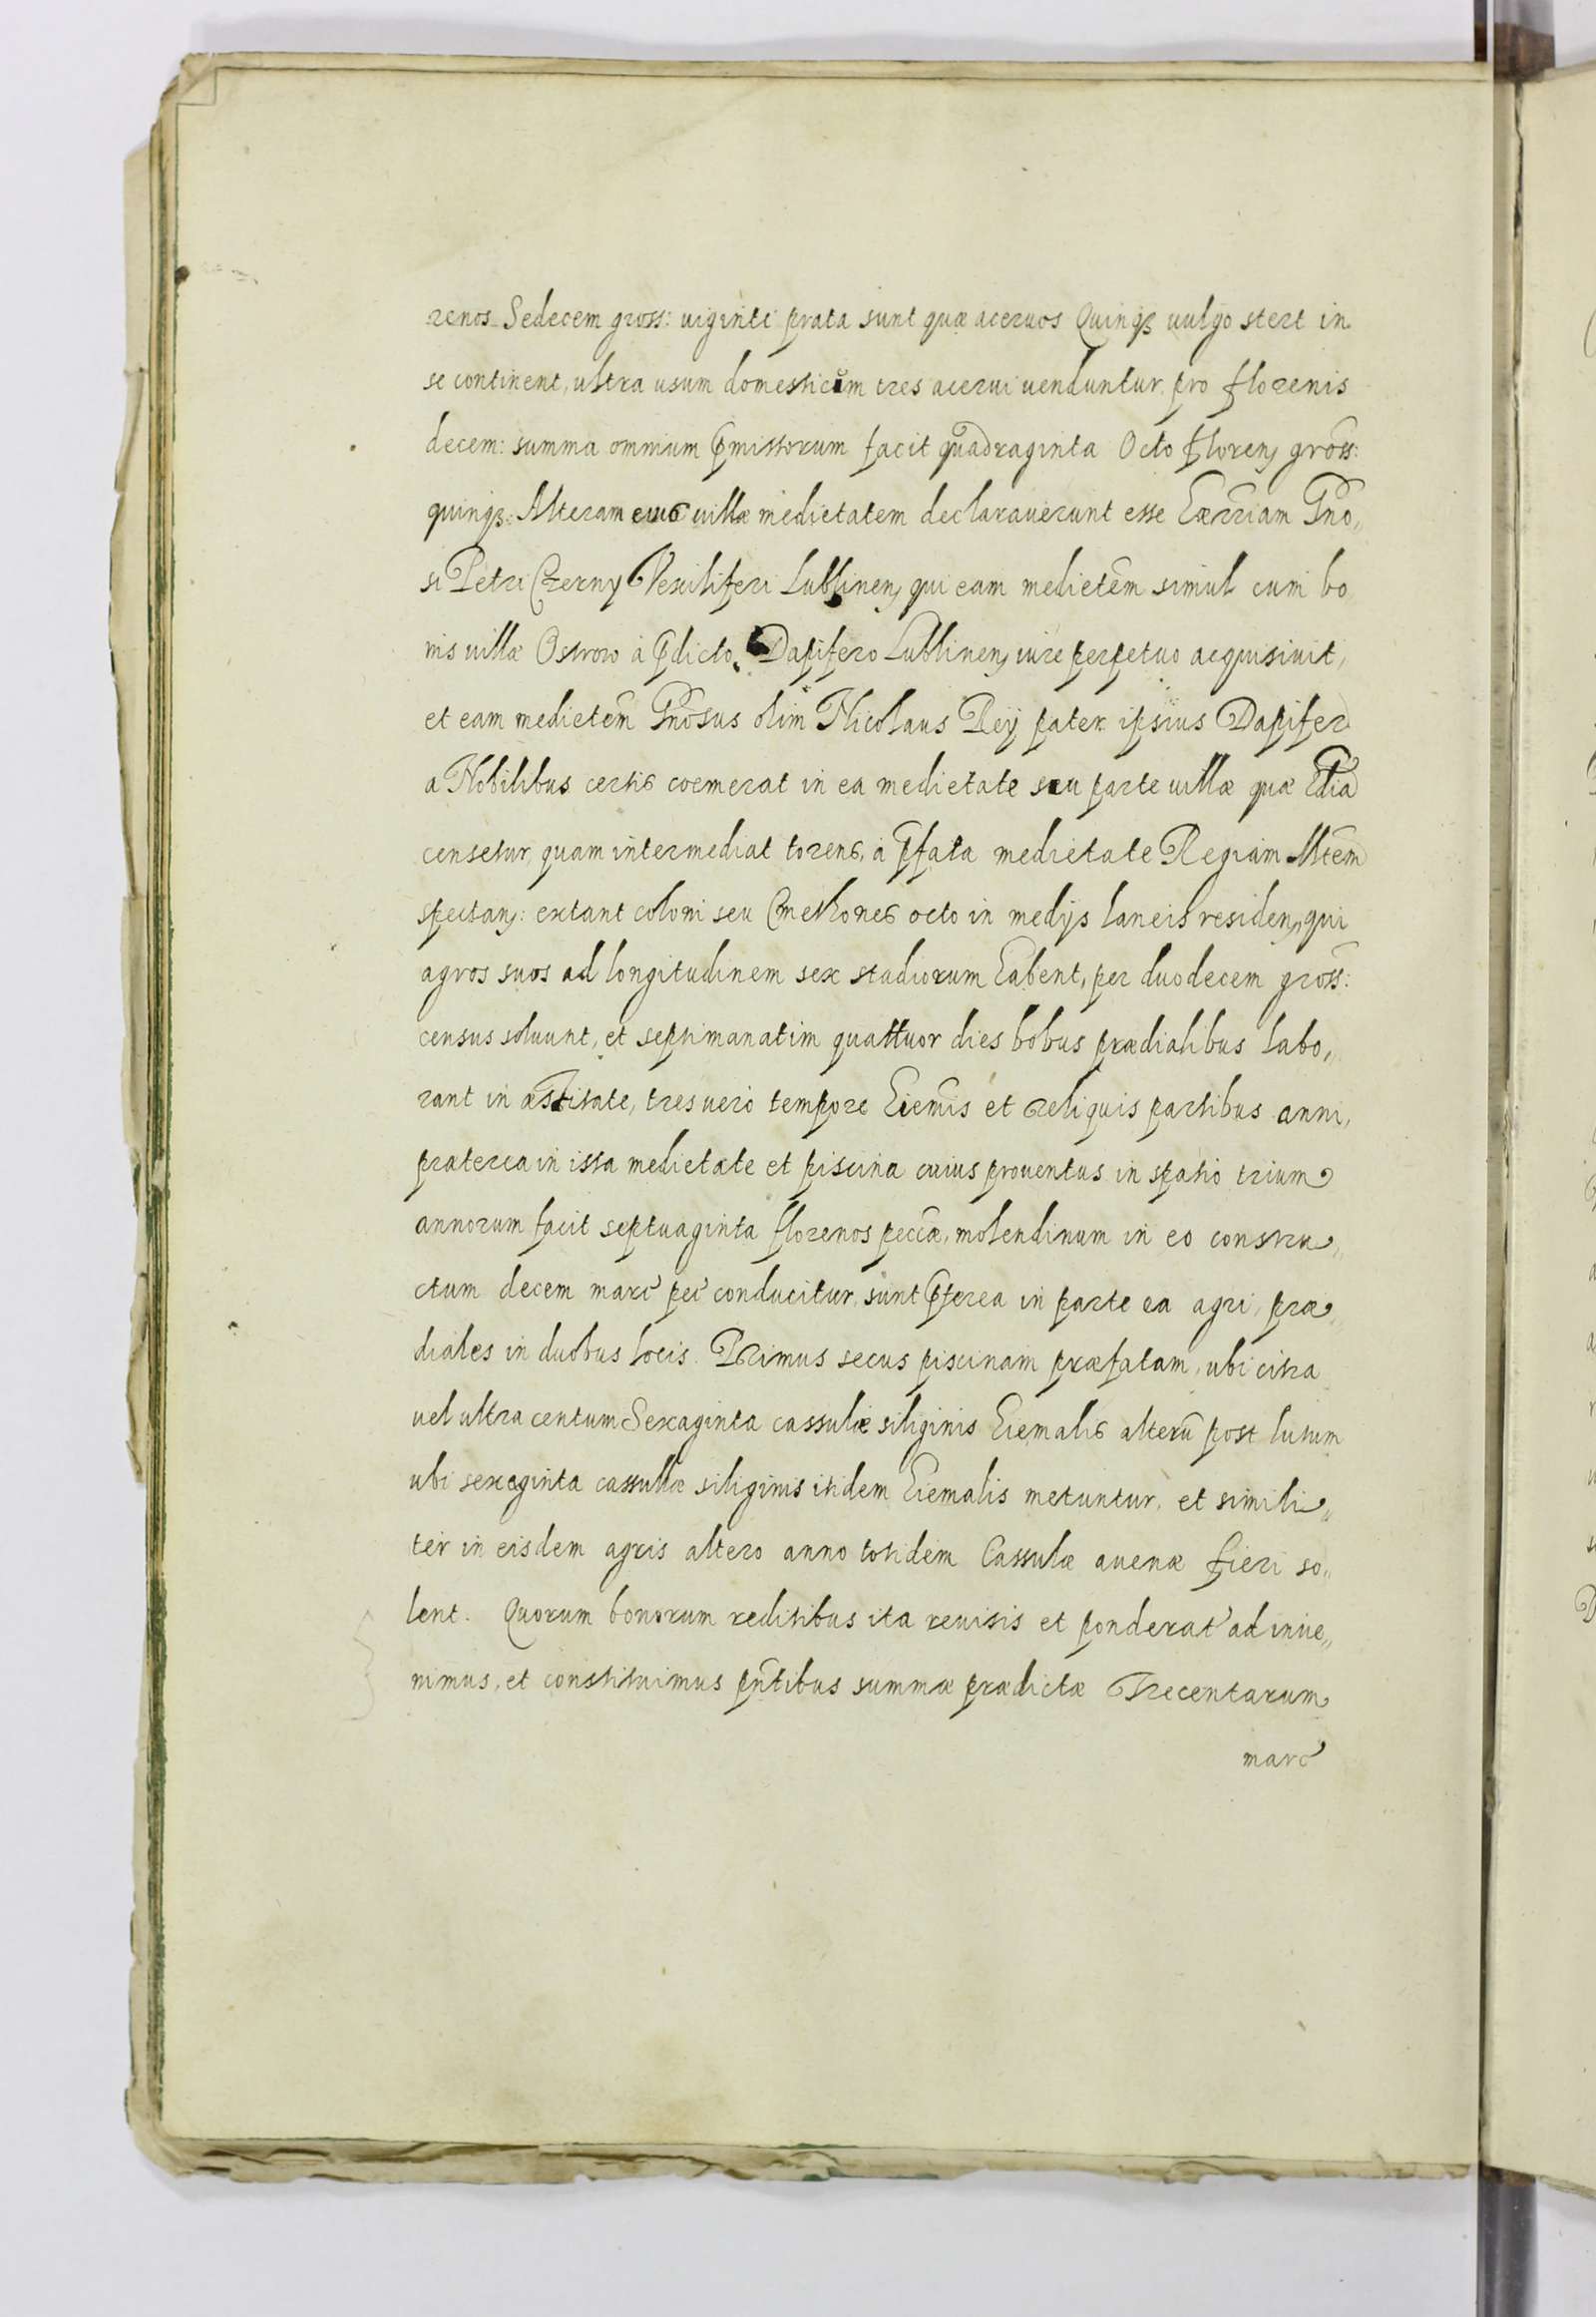 renos Sedecem gross: uiginti prata sunt quæ aceruos Quinqȝ uulgo stert in
se continent, ultra usum domesticům tres acerui uenduntur pro florenis
decem: summa omnium p̃missorum facit quadraginta Octo floren, gros̃s:
quinqȝ: Alteram eius uillæ medietatem declarauerunt esse hær̃riam Gño„
si Petri Czerny Vexiliferi Lublinen, qui eam medietẽm simul cum bo
nis uillæ Ostrow à p̃dicto Dapifero Lublinen, iure perpetuo acquisiuit,
et eam medietẽm Gñosus olim Nicolaus Reÿ pater ipsius Dapifer
a Nobilibus certis coemerat in ea medietate seu parte uillæ quæ
censetur, quam intermediat torens, à p̃fata medietate Regiam Mtẽm
spectan,: extant coloni seu Cmethones octo in medijs laneis residen, qui
agros suos ad longitudinem sex stadiorum habent, per duodecem gros̃s:
census soluunt, et septimanatim quattuor dies bobus prædialibus labo„
rant in æstitate, tres uero tempore hiem̃is et reliquis partibus anni,
præterea in ista medietate et piscina cuius prouentus in spatio trium
annorum facit septuaginta florenos pecc̃æ, molendinum in eo constru„
ctum decem marc pec conducitur, sunt p̃terea in parte ea agri, præ„
diales in duobus locis. Primus secus piscinam præfatam, ubi citra
uel ultra centum Sexaginta cassulæ siliginis hiemalis alterũ post lutum
ubi sexaginta cassullæ siliginis itidem hiemalis metuntur, et simili„
ter in eisdem agris altero anno totidem Cassulæ auenæ fieri so„
lent. Quorum bonorum reditibus ita reuisis et ponderat ad inue„
nimus, et constituimus pñtibus summæ prædictæ Trecentarum
marc